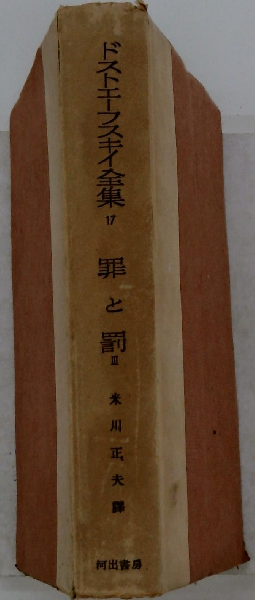 ドストエーフスキイ全集
17
罪と罰
III
米川正夫譯
河出書房